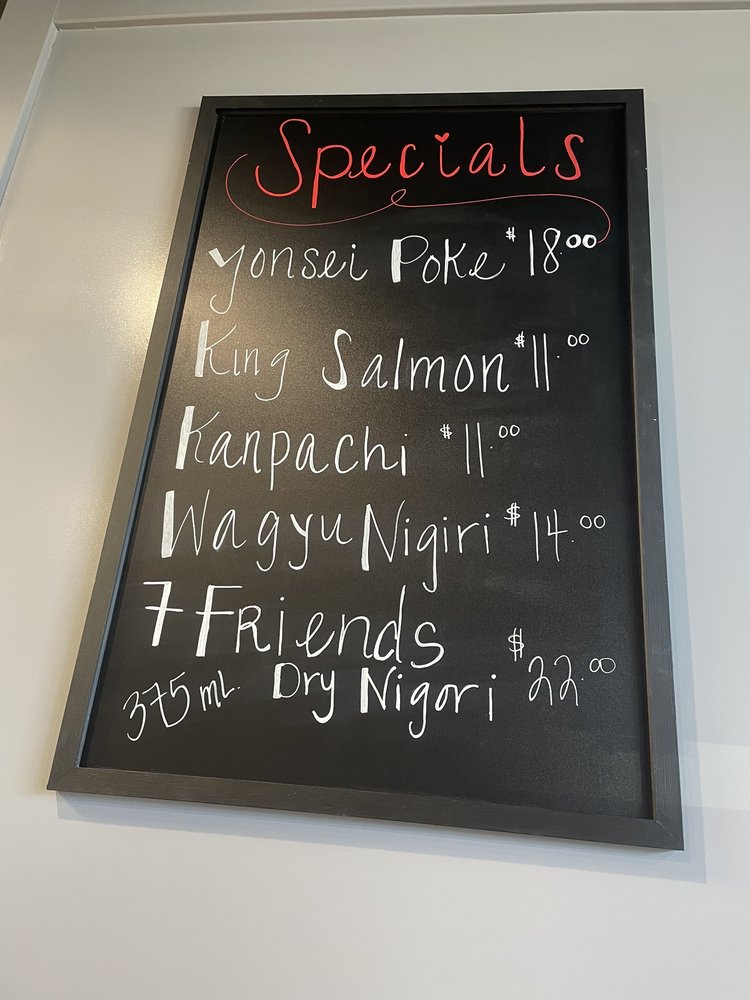 Specials
Yonsei Poke $18.00
King Salmon $11.00
Kanpachi $11.00
Wagyu Nigiri $14.00
7 Friends
375 mL. Dry Nigori $22.00